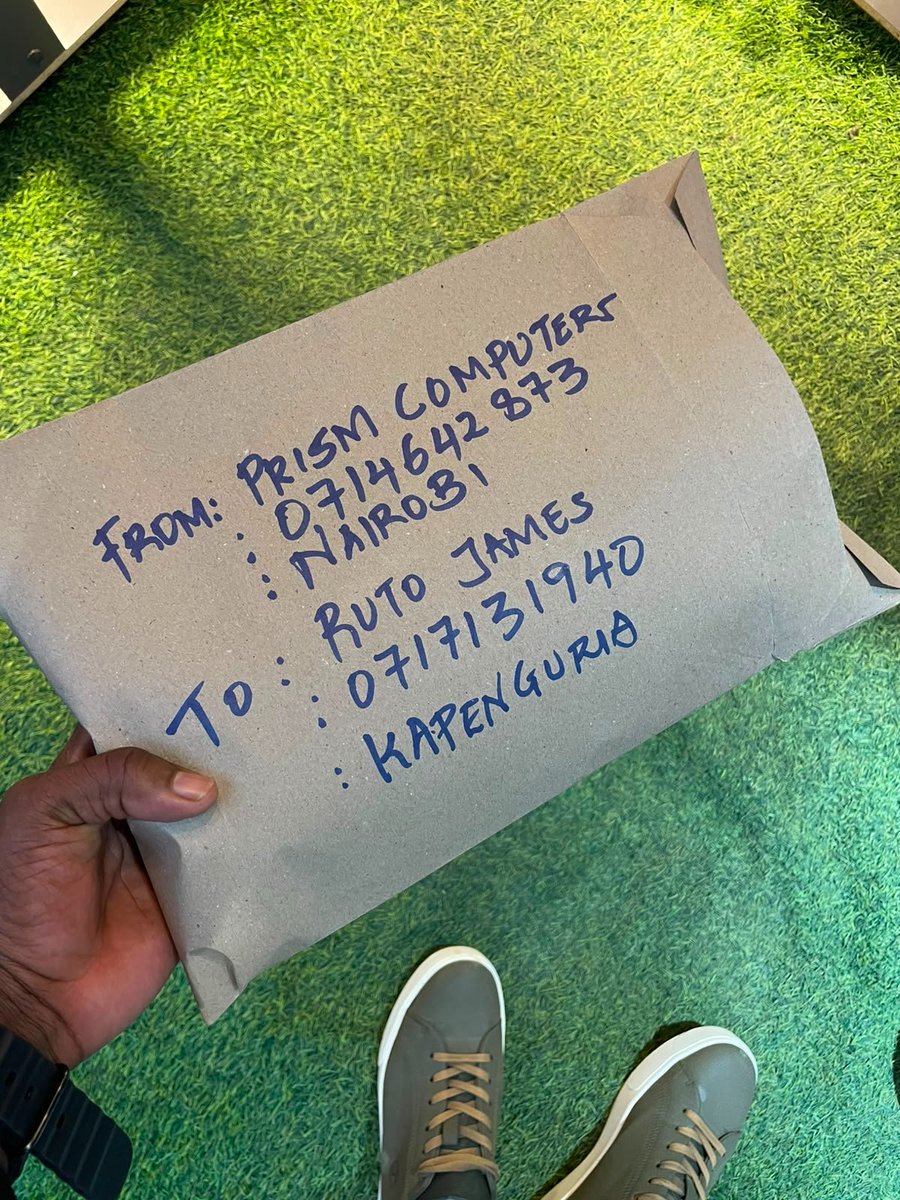 FROM: PRISM COMPUTERS
: 0714642873
: NAIROBI
TO: RUTO JAMES
: 0717131940
: KAPENGURIA